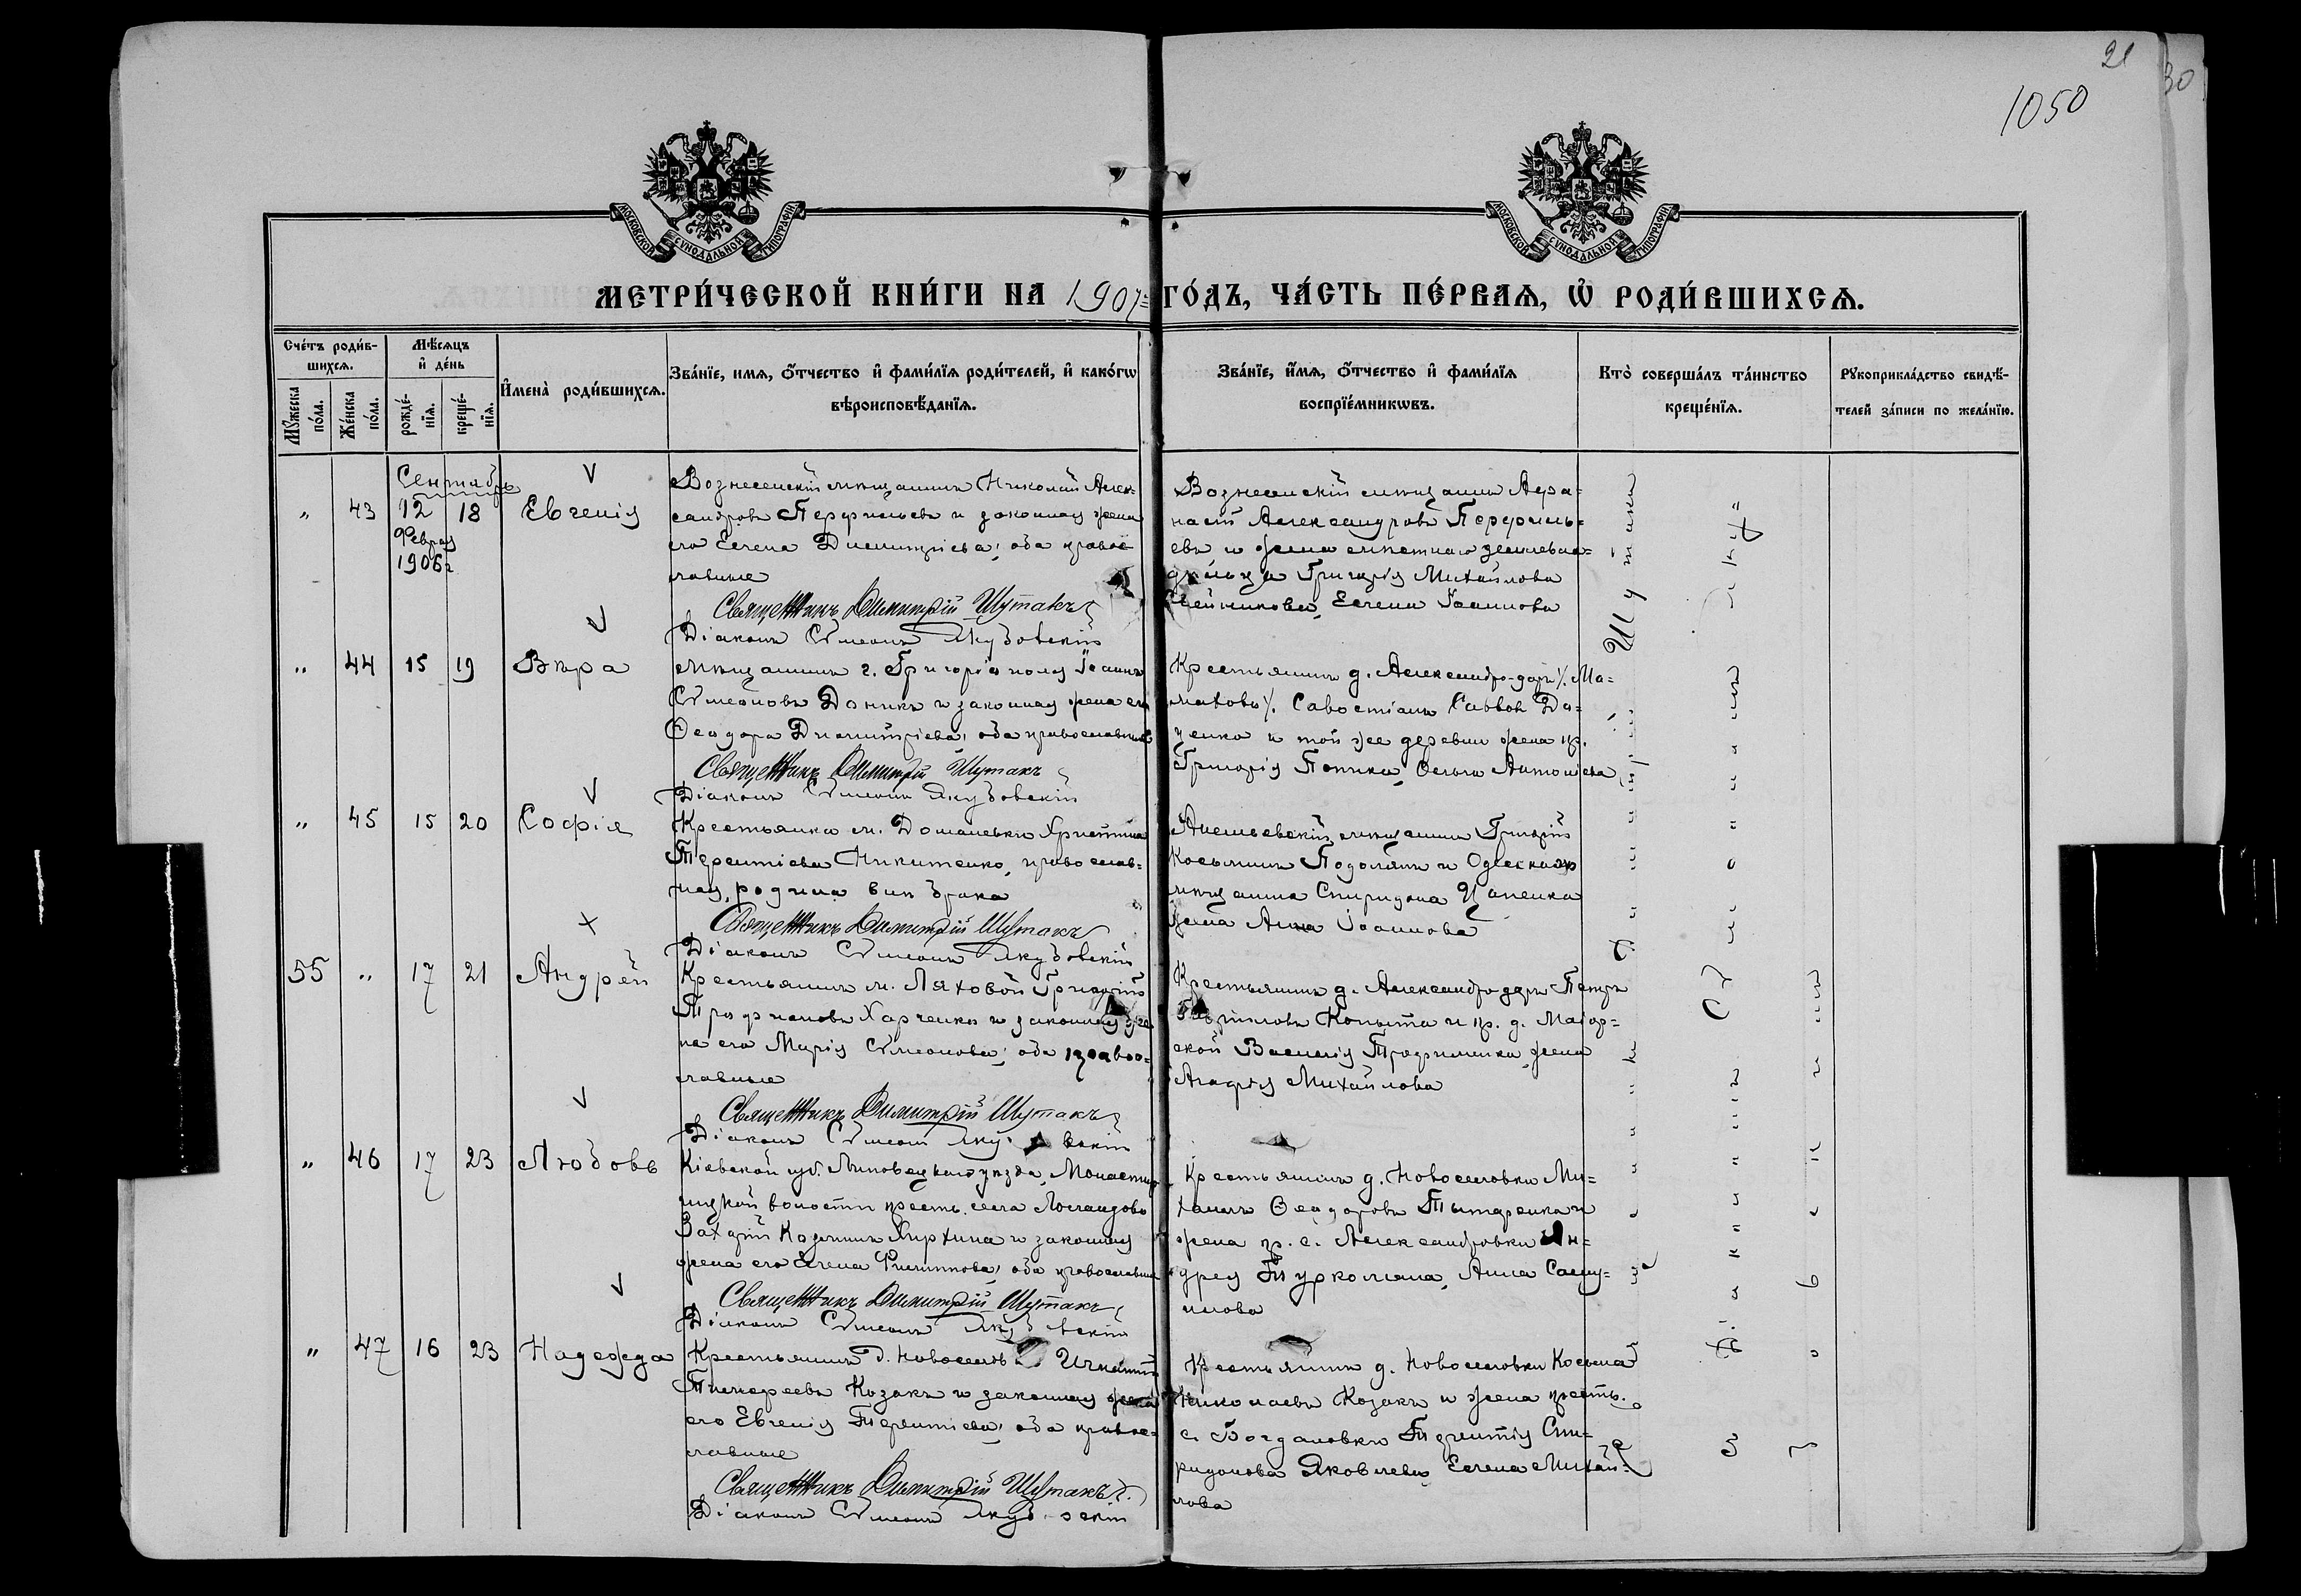 21
30
1050
МОСКОВСКОЙ СѴНОДАЛЬНОЙ ТИПОГРАФІИ
МОСКОВСКОЙ СѴНОДАЛЬНОЙ ТИПОГРАФІИ
МЕТРИ́ЧЕСКОЙ КНИ́ГИ НА 1907 ГО́ДЪ, ЧА́СТЬ ПЕ́РВАЯ, Ѡ РОДИ́ВШИХСЯ.
Сче́тъ роди́в-
шихся.
Мꙋжеска по́ла.
Же́нска по́ла.
Мѣ́сяцъ
и҆ де́нь
рожде́-
нїя.
креще́-
нїя.
И҆мена̀ роди́вшихся.
Зва́нїе, имя, ѻ҆́тчество и҆ фами́лїя роди́телей, и҆ како́гѡ
вѣроисповѣ́данїя.
Зва́нїе, и҆́мя, ѻ҆́тчество и҆ фами́лїя
воспрїе́мникѡвъ.
Кто̀ соверша́лъ та́инство
креще́нїя.
Рꙋкоприкла́дство свидѣ́-
телей за́писи по жела́нїю.
Сентябрь
" 43 12 18 Евгенія
Феврал
1906 г
Вознесенскій мѣщанинъ Николай Алек-
сандровъ Перфильевъ и законная жена
его Елена Димитріева, оба право-
славные
Священникъ Димитрій Шутакъ
Діаконъ Сѵмеонъ Якубовскій
Вознесенскій мѣщанинъ Аѳа-
насій Александровъ Перфиль-
евъ и жена мѣстнаго землевла-
дѣльца Григорія Михайлова
Елена Іоаннова
" 44 15 19 Вѣра
мѣщанинъ г. Григоріополя Іоаннъ
Сѵмеоновъ Доникъ и законная жена его
Ѳеодора Димитріева, оба православные
Священникъ Димитрій Шутакъ
Діаконъ Сѵмеонъ Якубовскій
Крестьянинъ д. Александро-даръ /. Ма-
лахово/. Савостіанъ Саввовъ Да-
ценко и той же деревни жена кр.
Григорія Попика, Ольга Антоніева
" 45 15 20 Софія
Крестьянка м. Доманевки Христина
Терентіева Никитенко, православ-
ная, родила внѣ брака
Священникъ Димитрій Шутакъ
Діаконъ Сѵмеонъ Якубовскій
Ананьевскій мѣщанинъ Григорій
Косьминъ Подолянъ и Одесскаго
мѣщанина Спиридона Цапенка
жена Анна Іоаннова
55 " 17 21 Андрей
Крестьянинъ м. Ляховой Григорій
Трофимовъ Харченко и законная же-
на его Марія Сѵмеонова, оба право-
славные
Священникъ Димитрій Шутакъ
Діаконъ Сѵмеонъ
Крестьянинъ д. Александродаръ Петръ
Копыта и кр. д. Маіор-
ской Василія Трофименка жена
Агафія Михайлова
" 46 17 23 Любовь
Кіевской губ. Липовецкаго уѣзда, Монастыр-
ищской волости кресть. села
Захарій и законная
жена его Елена Филиппова, оба православные
Священникъ Димитрій Шутакъ
Діаконъ Сѵмеонъ
Крестьянинъ д. Новоселовки Ми-
хаилъ Ѳеодоровъ Тытаренко и
жена кр. с. Александровки Ан-
дрея Туркомана, Анна Саму-
илова
" 47 16 23 Надежда
Крестьянинъ д. Новоселов Игнатій
Тимоѳеевъ Козакъ и законная жена
его Евгенія Терентіева, оба право-
славные
Священникъ Димитрій Шутакъ
Діаконъ Сѵмеонъ
Крестьянинъ д. Новоселовки Косьма
Николаевъ Козакъ и жена кресть.
с. Богдановки Терентія Спи-
ридонова Яковлева, Елена Михай-
лова
Священникъ Димитрій Шутакъ
съ діакономъ Сѵмеономъ Якубовскимъ